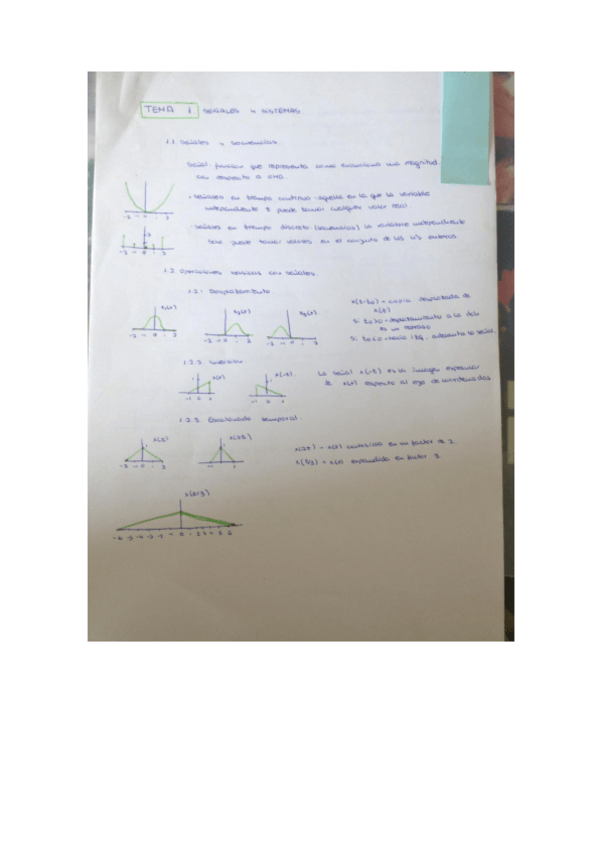 TEMA 1 SEÑALES Y SISTEMAS
1.1 Señales y secuencias
Señal: función que representa como evoluciona una magnitud
con respecto a otra.
• Señales en tiempo continuo: aquella en la que la variable
independiente t puede tomar cualquier valor real.
• Señales en tiempo discreto (secuencias) la variable independiente
solo puede tomar valores en el conjunto de los nºs enteros.
1.2 Operaciones básicas con señales.
1.2.1 Desplazamiento
x(t-to) = copia desplazada de
x(t)
Si to>0 = desplazamiento a la dcha
es un retraso
Si to<0 = hacia izq, adelanta la señal.
1.2.2. Inversión
x(t)
x(-t)
La señal x(-t) es la imagen especular
de x(t) respecto al eje de coordenadas.
1.2.3 Escalado temporal.
x(t)
x(2t)
x(2t) = x(t) comprimida en un factor de 2.
x(t/3) = x(t) expandida en factor 3.
x(t/3)